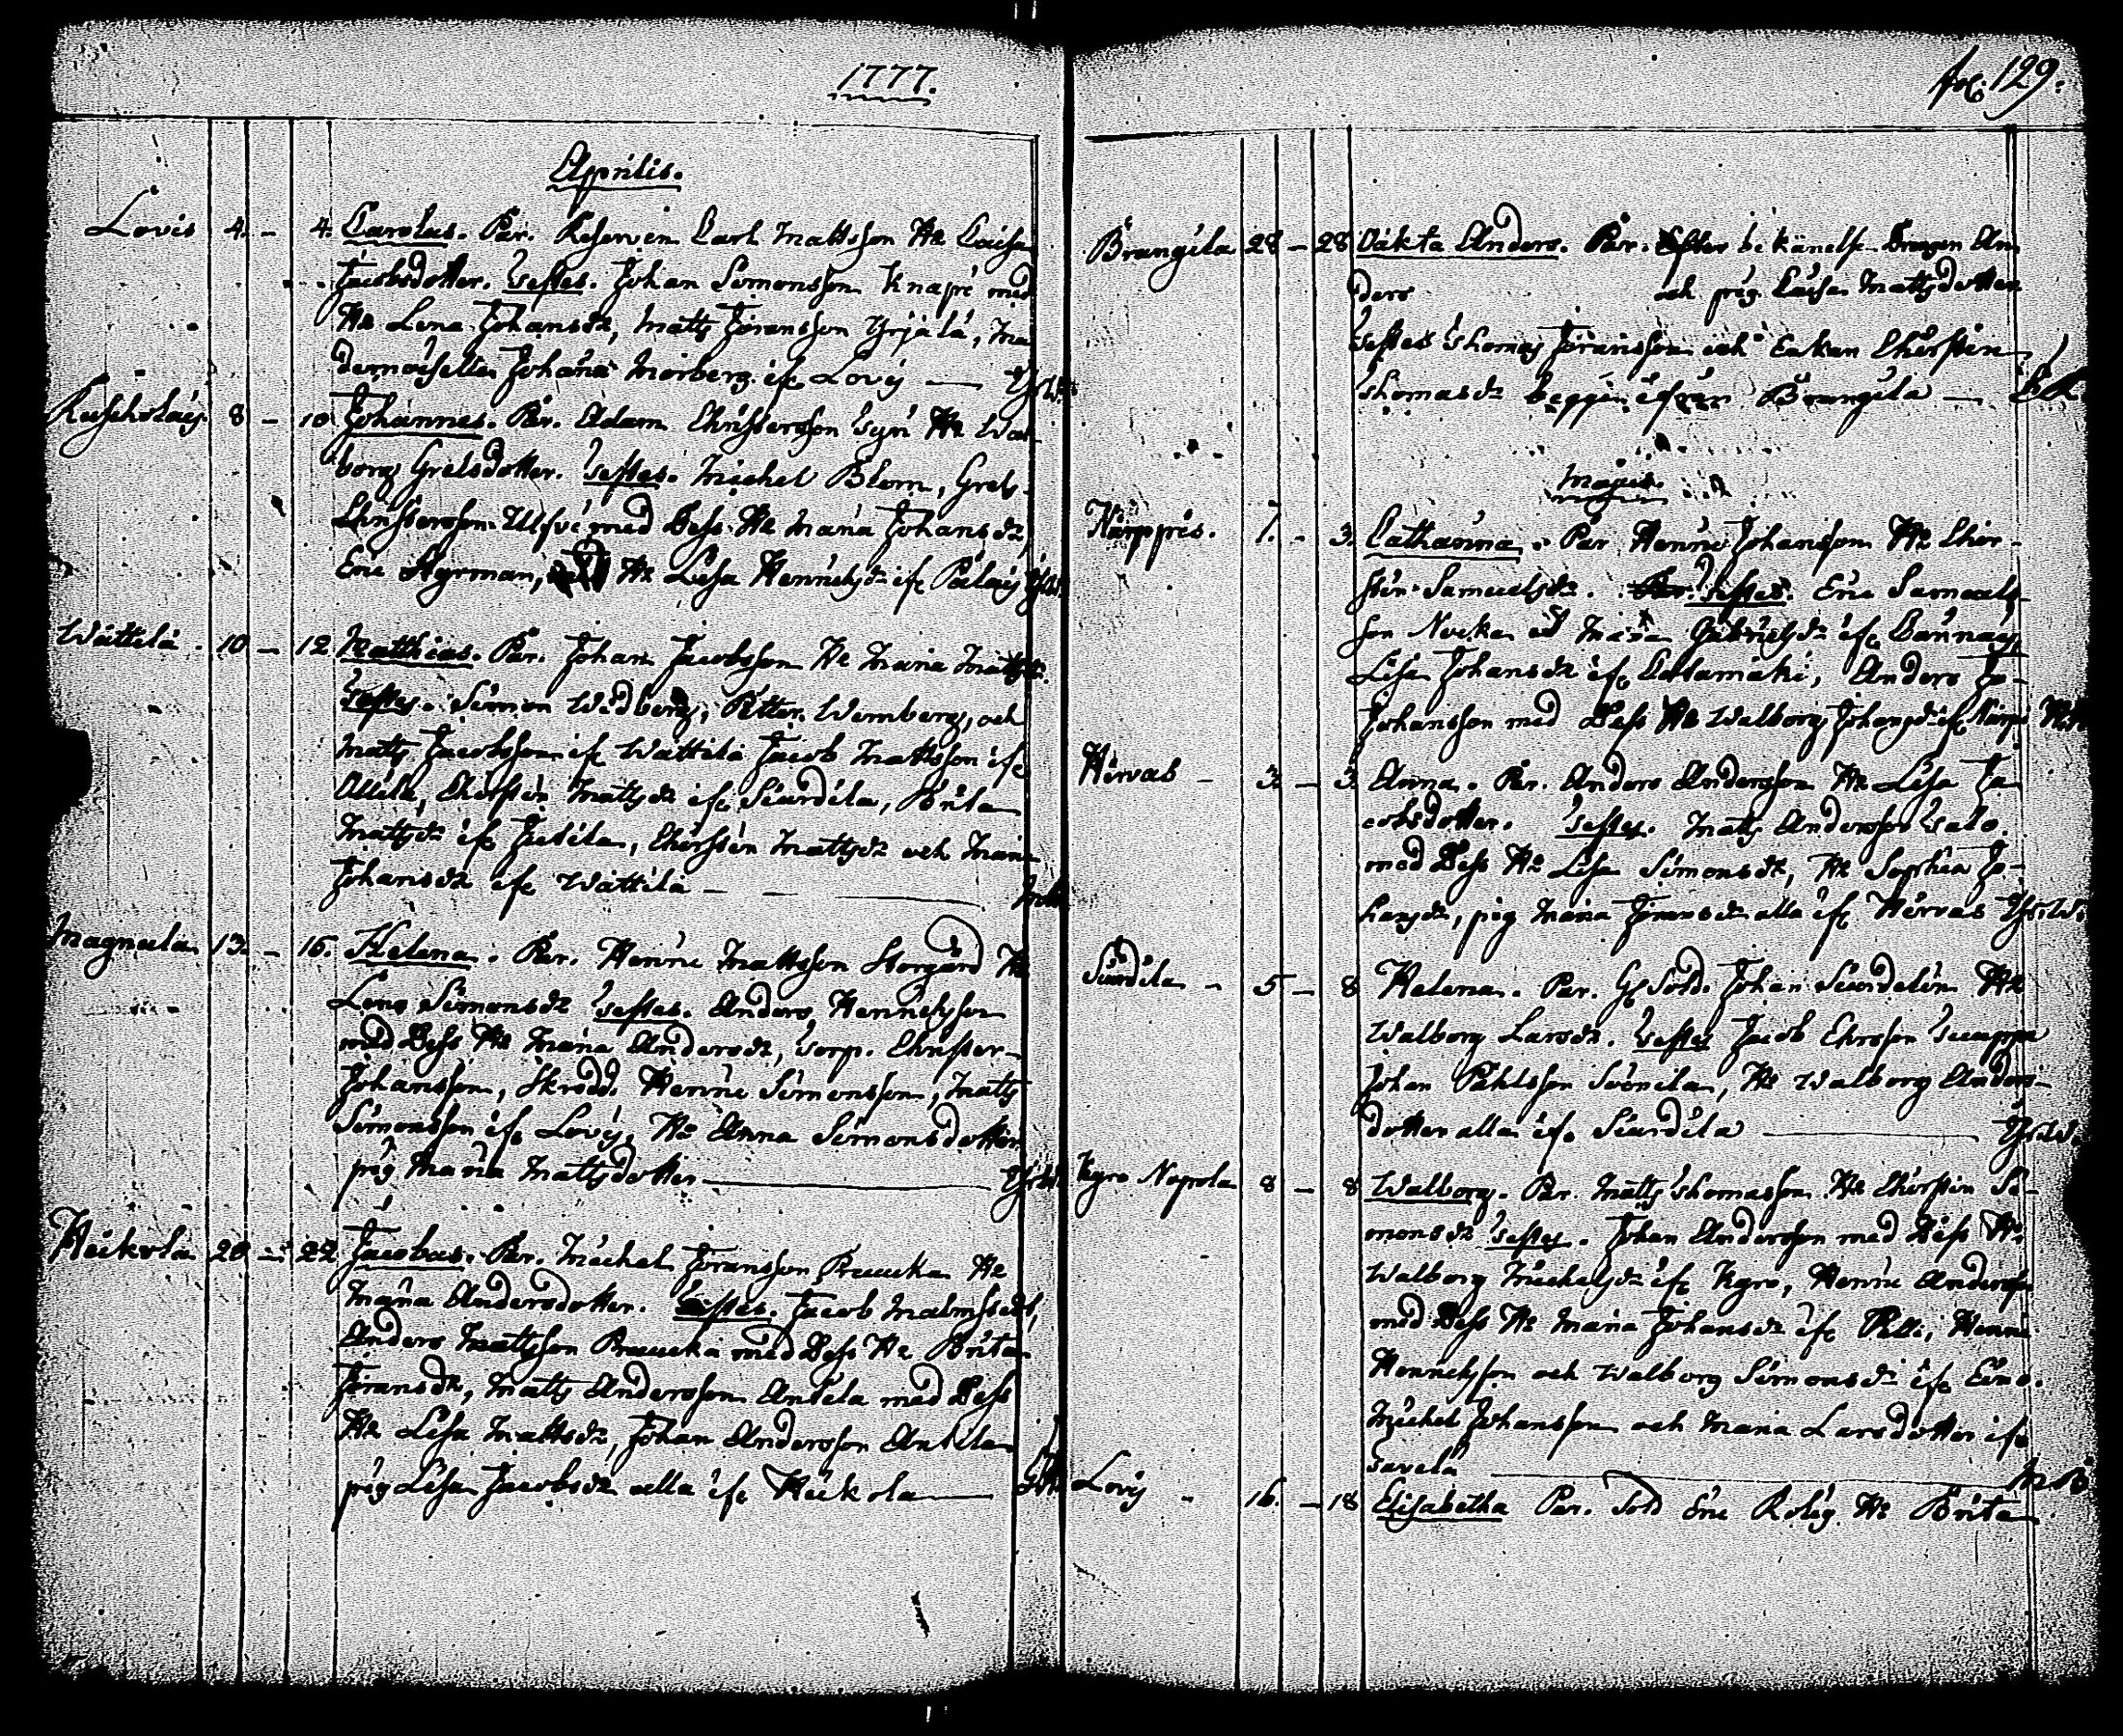 1777.
Aprilis.
Lovis 4. – 4. Carolus. Par. Reserven Carl Mattsson H: Caisa
Jacobsdotter. Testes. Johan Simonsson Knape med
H: Lena Johansdr, Matts Jöransson Yrjälä, Ma
demoiselle Johana Morberg if. Lovis — 
8 – 10 Johannes. Par. Adam Christersson Syri H: Wal
borg Grelsdotter. Testes. Michel Blom, Grels
Christersson med Dess H: Maria Johansdr,
Eric Styrman, H: Lisa Henricsdr if.
Wättilä. 10 – 12 Matthias. Par. Johan Jacobsson H: Maria Mattsdr.
Testes. Simon Widberg, Petter Wemberg, och
Matts Jacobsson if. Wättilä Jacob Mattsson if.
Ollila, Chirstin Mattsdr if. Siurdila, Brita
Mattsdr if. Jutila, Chirstin Mattsdr och Maria
Johansdr if. Wättilä —
Magnula 13. – 15. Helena. Par. Henric Mattsson Storgård H:
Lena Simonsdr Testes. Anders Henricsson
med Dess H: Maria Andersdr, Torp. Christer
Johansson, Skrädd. Henric Simonsson, Matts
Simonsson if. Lovis, H: Anna Simonsdotter
pig Maria Mattsdotter —
Heickola 20 – 22 Jacobus. Par. Michel Jöransson Pruucka H:
Maria Andersdotter. Testes. Jacob Malmstedt,
Anders Mattsson Pruucka med Dess H: Brita
Jöransdr, Matts Andersson Antila med Dess
H: Lisa Mattsdr, Johan Andersson Antila
pig Lisa Jacobsdr alla if. Heickola —
fol. 129.
Brangila 28 – 28 Oäkta Anders. Par. Efter bekänelse Drengen An
ders och pig. Caisa Mattsdotter
Testes Thomas Jöransson och Enkan Chirstin
Thomasdr beggie ifrån Brangila —
Majus.
Kärppis. 1. – 3. Catharina. Par Henric Johansson H: Chir
stin Samuelsdr. Testes. Eric Samuels
son Nocka och Maria Gabrielsdr if.
Lisa Johansdr if. Anders Jo
Johansson med Dess H: Walborg Johansdr if. Kärpp
Hirvas – 3. – 3. Anna. Par. Anders Andersson H: Lisa Ja
cobsdotter. Testes. Matts Andersson Talo.
med Dess H: Lisa Simonsdr, H: Sophia Jo
hansdr, pig Maria Jöransdr alla if. Hirvas
Siurdila – 5 – 8 Helena. Par. Gl Sold. Johan Siurdelin H:
Walborg Larsdr. Testes Jacob Ehrsson
Johan Påhlsson, H: Walborg Anders
dotter alla if. Siurdila —
Kyro Napola 8 – 8 Walborg. Par. Matts Thomasson H: Chirstin Si
monsdr Testes. Johan Andersson med Dess H:
Walborg Michelsdr if. Kyro, Henric Andersson
med Dess H: Maria Johansdr if. Pelli, Henric
Henricsson och Walborg Simonsdr if. Eino.
Michel Johansson och Maria Larsdotter if.
Tavela — M.B.
Lovis – 16. – 18 Elisabetha Par. Sold Eric Rolig H: Brita